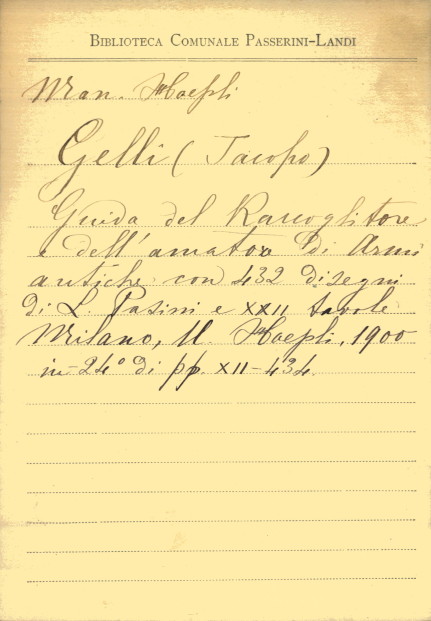 BIBLIOTECA COMUNALE PASSERINI-LANDI
Man. Hoepli
Gelli (Jacopo)
Guida del Raccoglitore
e dell'amatore di Armi
antiche con 432 disegni
di L. Pasini e XXII tavole
Milano, U. Hoepli, 1900
in-24° di pp. XII-434.